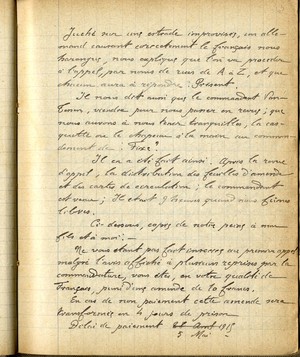 Juché sur une estrade improvisée, un alle-
mand causant correctement le français nous
harangue, nous explique que l'on va procéder
à l'appel, par noms de rues de A à Z, et que
chacun aura à répondre: Présent.
Il nous dit aussi que le commandant Von-
viendra pour nous passer en revue; que
nous aurons à nous tenir tranquilles, la cas-
quette ou le chapeau à la main au comman-
dement de: Fixe!
Il en a été fait ainsi. Après la revue
d'appel, la distribution des feuilles d'amende
et des cartes de circulation; le commandant
est venu; Il était 9 heures quand nous fûmes
libres.
Ci-dessous, copie de notre peine à mon
fils et à moi:—
Ne vous étant pas fait inscrire au premier appel
malgré l'avis affiché à plusieurs reprises par la
commandature, vous êtes, en votre qualité de
Français, puni d'une amende de 10 francs.
En cas de non paiement cette amende sera
transformée en 4 jours de prison.
Délai de paiement Avril 1915
5 Mai